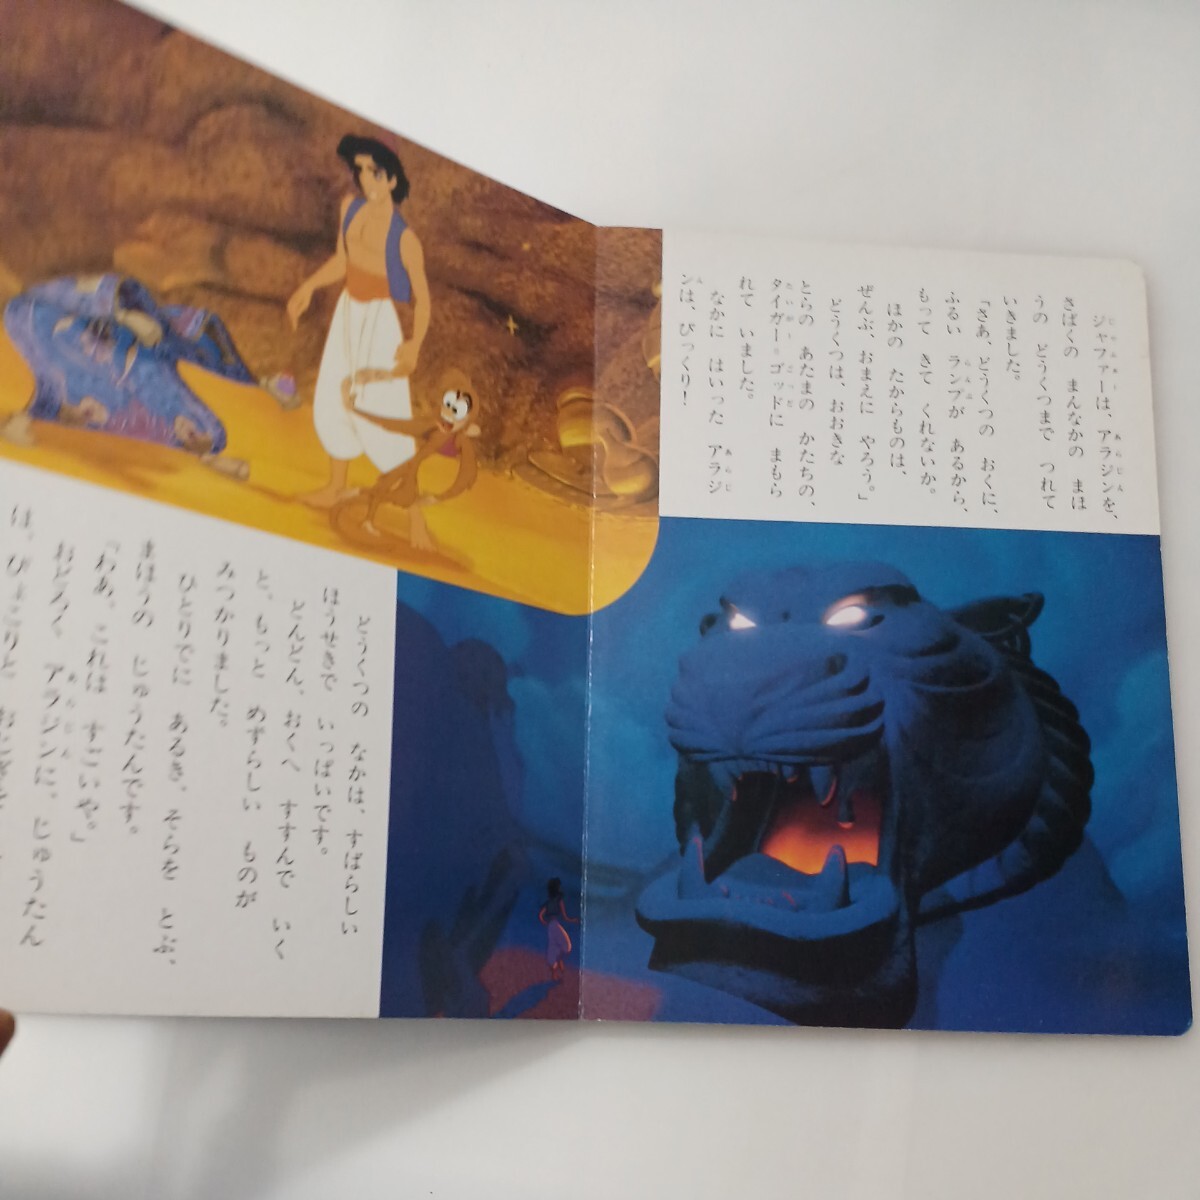 ジャファーは、アラジンを、
さばくの まんなかの まほ
うの どうくつまで つれて
いきました。
「さあ、どうくつの おくに、
ふるい ランプが あるから、
もって きて くれないか。
ほかの たからものは、
ぜんぶ、おまえに やろう。」
どうくつは、おおきな
とらの あたまの かたちの、
タイガー＝ゴッドに まもら
れて いました。
なかに はいった アラジ
ンは、びっくり！
どうくつの なかは、すばらしい
ほうせきで いっぱいです。
どんどん、おくへ すすんで いく
と、もっと めずらしい ものが
みつかりました。
ひとりでに あるき、そらを とぶ、
まほうの じゅうたんです。
「わあ、これは すごいや。」
おどろく アラジンに、じゅうたん
は、